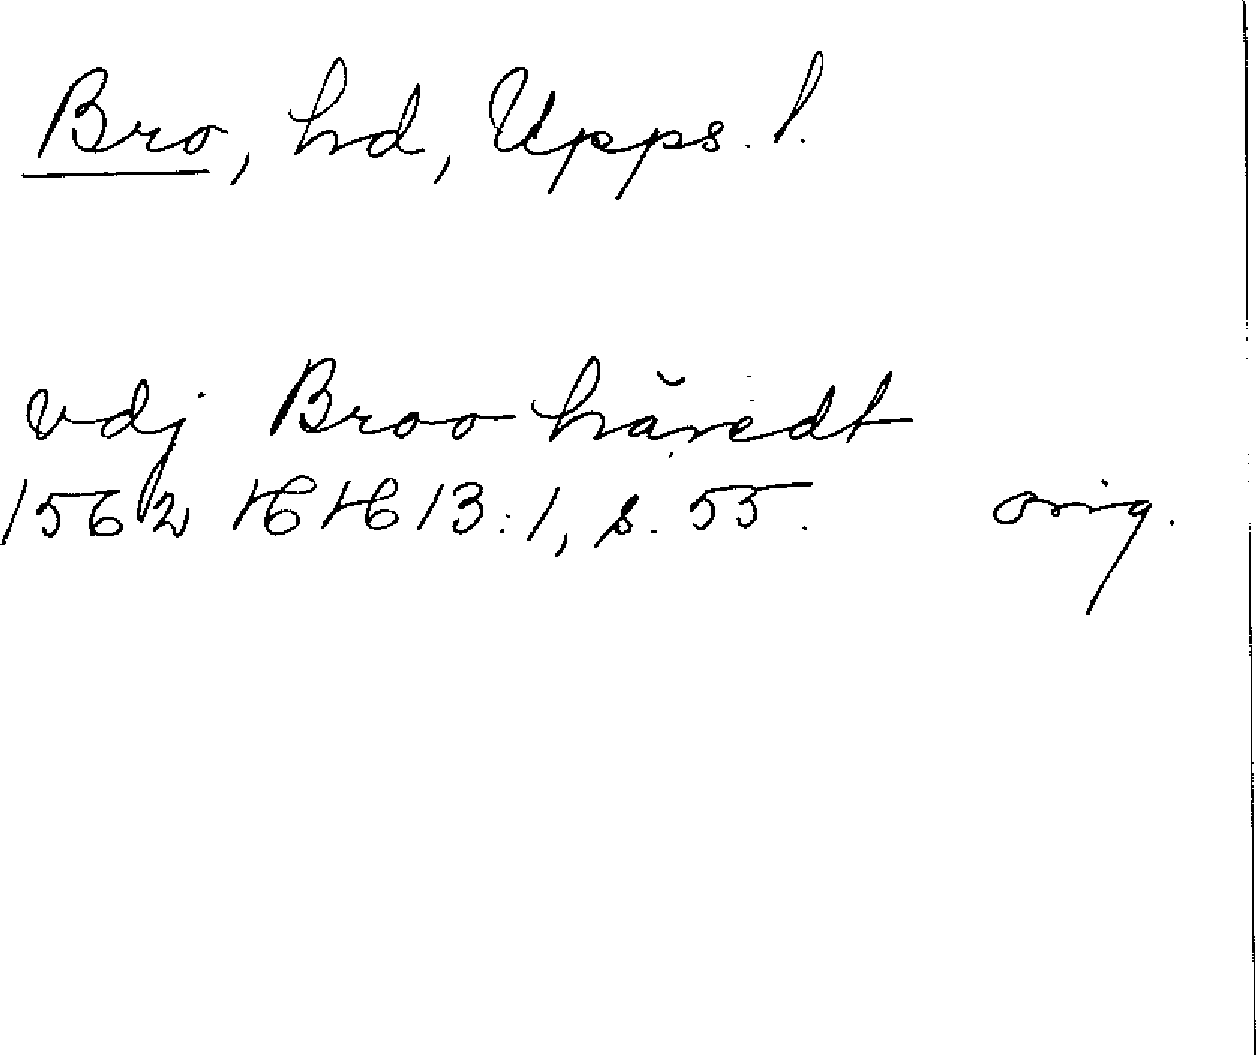 Bro, hd, Upps. l.
vdj Broo häredt
1562 HH 13:1, s. 55. orig.